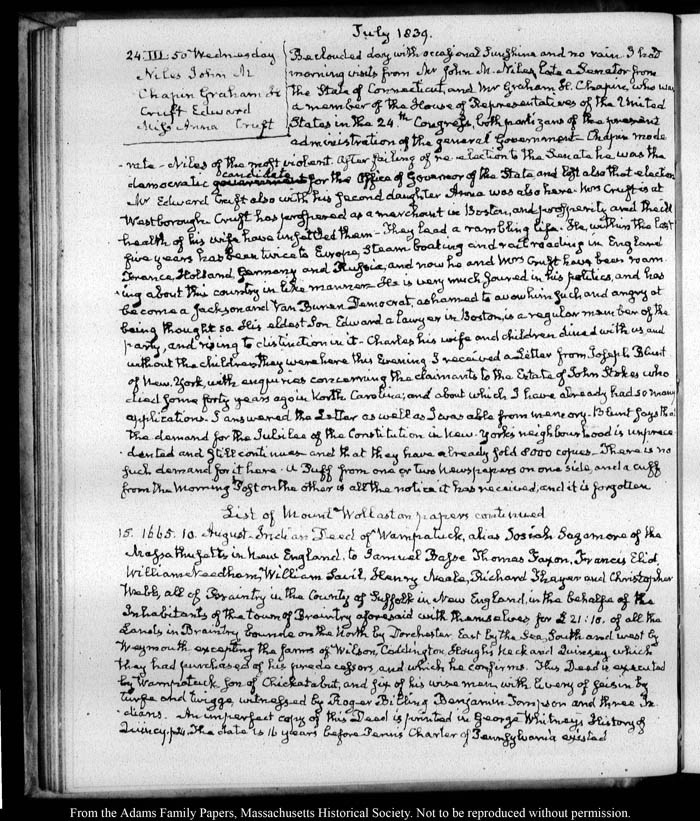 July 1839.
24. III: 50 Wednesday
Niles John M
Chapin Graham H
Cruft Edward
Miss Anna Cruft
Beclouded day with occasional Sunshine and no rain. I had
morning visits from Mr John M. Niles, late a Senator from
the State of Connecticut, and Mr Graham H. Chapin, who was
a member of the House of Representatives of the United
States in the 24th Congress, both partizans of the present
administration of the general Government—Chapin mode
-rate—Niles of the most violent. After failing of re-election to the Senate he was the
democratic government candidate for the Office of Governor of the State and lost also that election
Mr Edward Cruft also with his second daughter Anna was also here. Mrs Cruft is at
Westborough. Cruft has prospered as a merchant in Boston, and prosperity and the ill
health of his wife have unsettled them—They lead a rambling life. He, within the last
five years has been twice to Europe, Steam-boating and rail-roading in England
France, Holland, Germany and Russia, and now he and Mrs Cruft have been roam-
-ing about this country in like manner. He is very much soured in his politics, and has
become a Jackson and Van Buren Democrat, ashamed to avow him such, and angry at
being thought so. His eldest Son Edward a lawyer in Boston, is a regular member of the
party, and rising to distinction in it—Charles his wife and children dined with us and
without the children, they were here this Evening. I received a Letter from Joseph Blunt
of New-York, with enquiries concerning the claimants to the Estate of John Stokes who
died some forty years ago in North Carolina, and about which I have already had so many
applications. I answered the Letter as well as I was able from memory. Blunt says that
the demand for the Jubilee of the Constitution in New-York's neighbourhood is unprece
-dented and still continues and that they have already sold 8000 copies—There is no
such demand for it here. A Puff from one or two Newspapers on one side, and a cuff
from the Morning Post on the other is all the notice it has received, and it is forgotten
List of Mount Wollaston papers continued
15. 1665. 10. August. Indian Deed of Wampatuck, alias Josiah Sagamore of the
Massathusetts in New England. to Samuel Basse Thomas Faxon, Francis Eliot,
William Needham, William Savil, Henry Neale, Richard Thayer and Christopher
Webb, all of Braintry in the County of Suffolk in New England, in the behalfe of the
Inhabitants of the town of Braintry aforesaid with themselves for £21:10. of all the
Lands in Braintry bounde on the North by Dorchester East by the Sea, South and west by
Weymouth excepting the farms of Wilson, Coddington, Hough's Neck and Quinsey which
they had purchased of his predecessors, and which he confirms. This Deed is executed
by Wampatuck, Son of Chickatabut, and six of his wise men, with livery of seisin by
turfe and twigge, witnessed by Roger Billing Benjamin Tompson and three In
-dians. An imperfect copy of this Deed is printed in George Whitney's History of
Quincy. p24. The date is 16 years before Penn's Charter of Pennsylvania existed
From the Adams Family Papers, Massachusetts Historical Society. Not to be reproduced without permission.